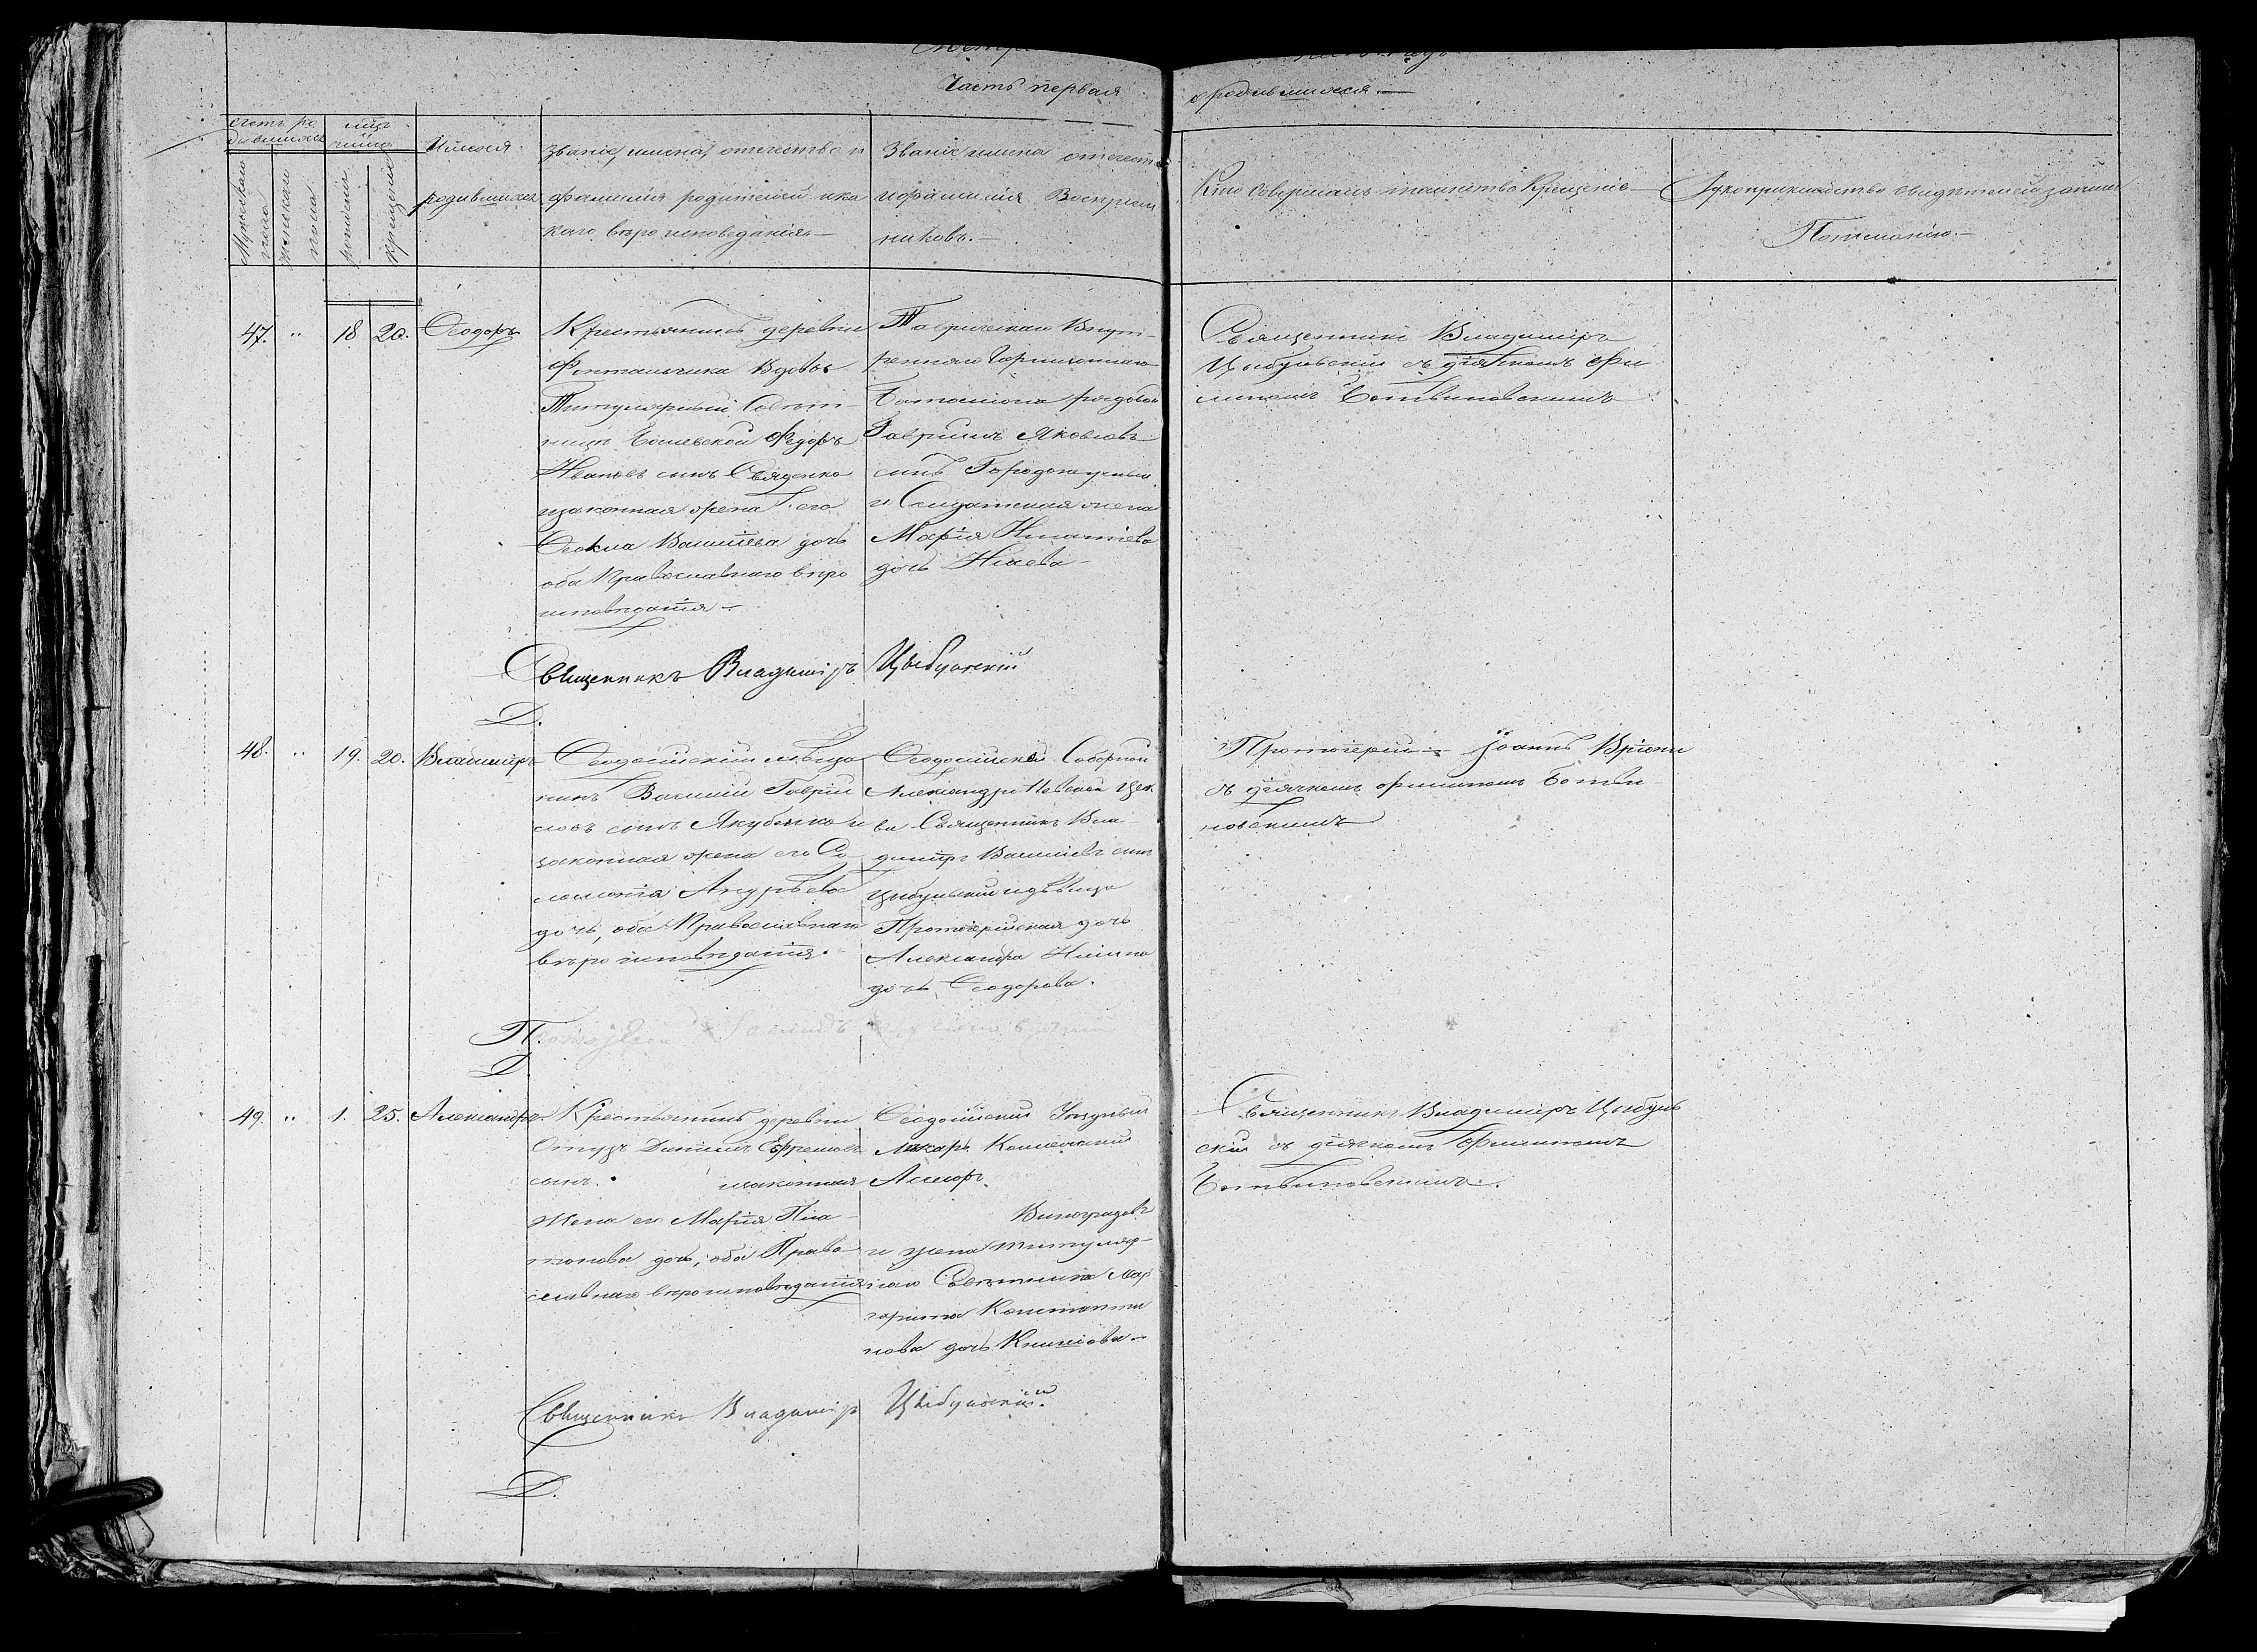 Часть первая
о родившихся.—
счетъ ро
дившихся
Мужескаго
пола
женскаго
пола
рожденія
крещенія
Имена
родившихся
Званіе, имена, отечество и
фамилія родителей и ка
каго вѣроисповеданія.—
Званіе имена отечест
и фамилія Воспріем
никовъ.—
Кто совершалъ таинство Крещенія
Рукоприкладство свидѣтелей записи
Пожеланію.—
47. „ 18 20. Ѳеодоръ
Крестьянинъ деревни
Фонтанчика Вдовы
Титулярный Совѣт-
ницы Федоръ
Ивановъ сынъ
и законная жена его
Ѳекла Васильева дочь
оба Православнаго вѣро
исповѣданія.—
Таврическаго Внут-
ренняго Гарнизоннаго
Баталіона рядовой
Гавріилъ Яковлевъ
сынъ
и Солдатская жена
Марія Игнатіева
дочь
Священникъ Владиміръ
Цыбульскій съ дьячкомъ Фи
липомъ Ботвиновскимъ
Священникъ Владиміръ Цыбульскій
Д.
48. „ 19. 20. Владиміръ
Ѳеодосійскій мѣща
нинъ Василій Гавріи
ловъ сынъ Якубенко и
законная жена его Со
ломонія Андрѣева
дочь, оба Православнаго
вѣроисповѣданія.
Ѳеодосійской Соборной
Александро Невской Церк
ви Священникъ Вла
диміръ Васильевъ сынъ
Цыбульскій и дѣвица
Протоіерейская дочь
Александра
дочь Ѳеодорова.
Протоіерей Іоаннъ
съ дьячкомъ Филипомъ Ботви
новскимъ
П.
Д.
49. „ 1. 25. Александръ
Крестьянинъ деревни
Отузъ Даніилъ Ефремовъ
сынъ. и законная
жена его Марія Пла
тонова дочь, оба Право
славнаго вѣроисповѣданія
Ѳеодосійскій Уѣздный
Лекарь Коллежскій
Ассесоръ
Виноградовъ
и жена Титуляр-
наго Совѣтника Мар
гарита Константи
нова дочь
Священникъ Владиміръ Цыбуль
скій съ дьячкомъ Филипомъ
Ботвиновскимъ.
Священникъ Владиміръ Цыбульскій.
Д.